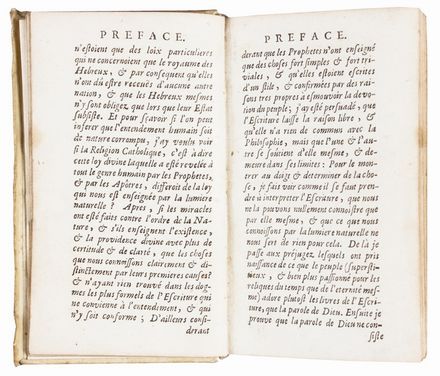 PREFACE.
n'estoient que des loix particulieres
qui ne concernoient que le royaume des
Hebreux, & par consequent qu'elles
n'ont dû estre receuës d'aucune autre
nation, & que les Hebreux mesmes
n'y sont obligez, que lors que leur Estat
subsiste. Et pour sçavoir si l'on peut
inferer que l'entendement humain soit
de nature corrompu, j'ay voulu voir
si la Religion Catholique, c'est à dire
cette loy divine laquelle a esté revelée à
tout le genre humain par les Prophetes,
& par les Apôtres, differoit de la loy
qui nous est enseignée par la lumiere
naturelle? Apres, si les miracles
ont esté faits contre l'ordre de la Na-
ture, & s'ils enseignent l'existence,
& la providence divine avec plus de
certitude & de clarté, que les choses
que nous connoissons clairement & di-
stinctement par leurs premieres causes?
& n'ayant rien trouvé dans les dog-
mes les plus formels de l'Escriture qui
ne convienne à l'entendement, & qui
n'y soit conforme; D'ailleurs consi-
derant
PREFACE.
derant que les Prophetes n'ont enseigné
que des choses fort simples & fort tri-
viales, & qu'elles estoient escrites
d'un stile, & confirmées par des rai-
sons tres propres à esmouvoir la devo-
tion du peuple; j'ay esté persuadé, que
l'Escriture laisse la raison libre, &
qu'elle n'a rien de commun avec la
Philosophie, mais que l'une & l'au-
tre se soûtient d'elle mesme, & de-
meure dans ses limites: Pour le mon-
trer au doigt & determiner de la cho-
se, je fais voir comme il se faut pren-
dre à interpreter l'Escriture, que nous
ne la pouvons nullement connoistre que
par elle mesme, & que ce que nous
connoissons par la lumiere naturelle ne
nous sert de rien pour cela. De là je
passe aux préjugez, lesquels ont pris
naissance de ce que le peuple (supersti-
tieux, & bien plus passionné pour les
reliques du temps que de l'eternité mes-
me) adore plutost les livres de l'Escri-
ture, que la parole de Dieu. Ensuite je
prouve que la parole de Dieu ne con-
siste